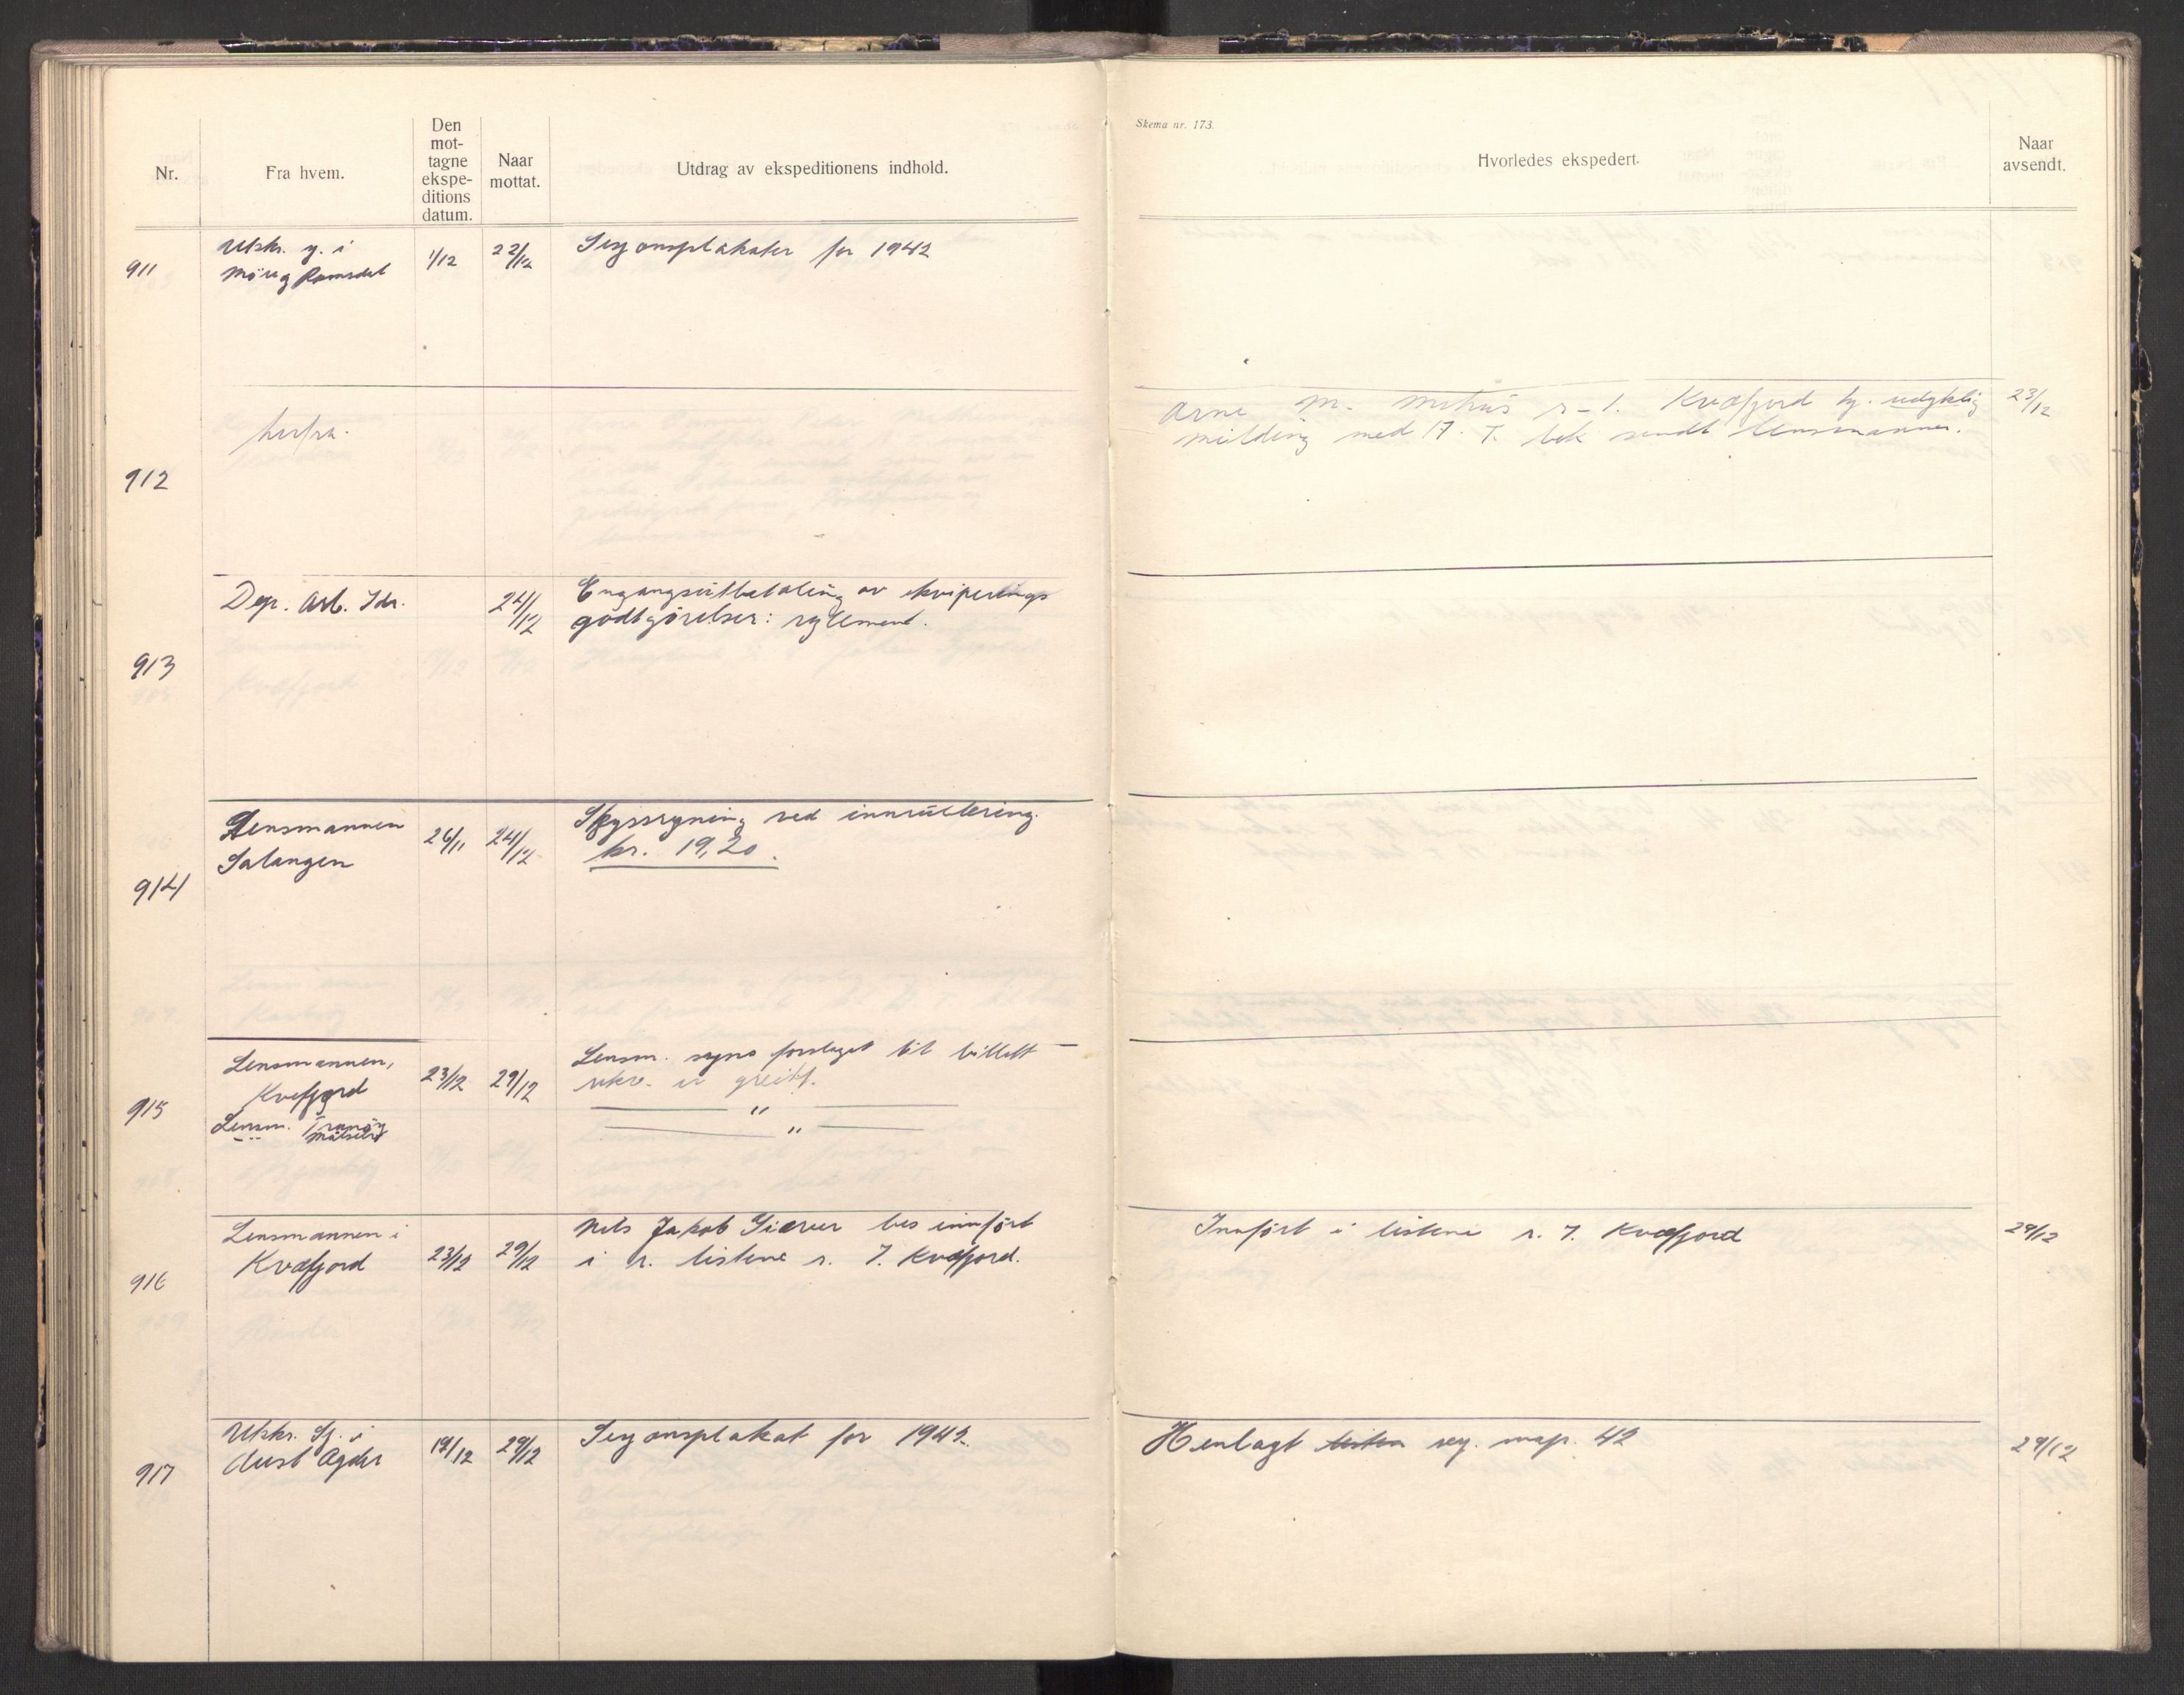 Skema nr. 173.
Nr.
Fra hvem.
Den mot-
tagne
ekspe-
ditions
datum.
Naar
mottat.
Utdrag av ekspeditionens indhold.
Hvorledes ekspedert.
Naar
avsendt.
911
Utskr. i
Möre og Romsdal
1/12
22/12
Sesjonsplakater for 1942
912
herfra.
Arne M. r-l. Kvæfjord
melding med 17. T. bek sendt lensmannen.
23/12
913
Dep. Arb. Idr.
24/12
Engangsutbetaling av ekviperings
godtgjörelser: reglement.
914
Lensmannen
Salangen
26/11
24/12
ved innrullering.
kr. 19,20.
915
Lensmannen,
Kvefjord
Lensm. Tranöy
— " — Målselv
23/12
29/12
Lensm. synes forslaget til billett —
rekv. er greitt.
— " —
— " —
916
Lensmannen i
Kvæfjord
23/12
29/12
Nils Jakob Giæver bes innfört
i r. listene r. 7. Kvæfjord.
Innfört i listene r. 7. Kvæfjord
29/12
917
Utskr. Sj. i
Aust Agder
19/12
29/12
Sesjonsplakat for 1942.
Henlagt sesj. map. 42
29/12